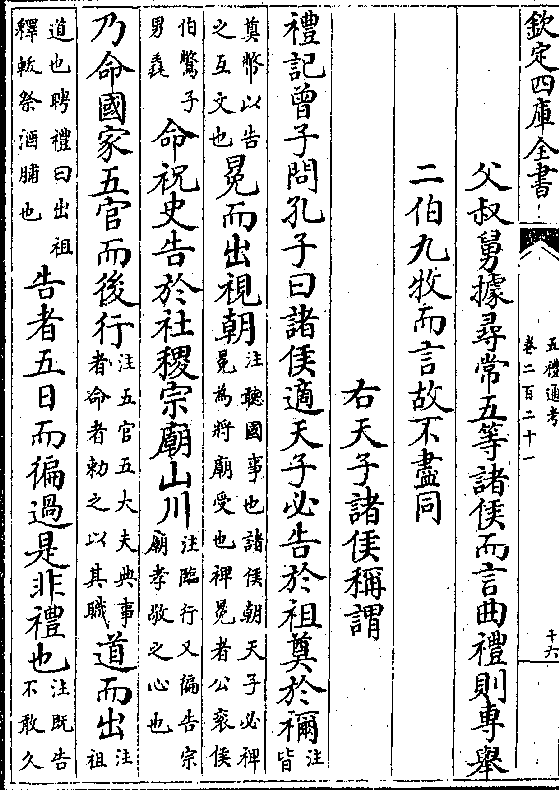 欽定四庫全書
五禮通考
卷二百二十一
十六
父叔舅據尋常五等諸侯而言曲禮則專舉
二伯九牧而言故不盡同
右天子諸侯稱謂
禮記曾子問孔子曰諸侯適天子必告於祖奠於禰注皆
奠幣以告之互文也冕而出視朝注聽國事也諸侯朝天子必裨冕為將廟受也裨冕者公衮侯
伯鷩子男毳命祝史告於社稷宗廟山川注臨行又徧告宗廟孝敬之心也
乃命國家五官而後行注五官五大夫典事者命者勅之以其職道而出注祖
道也聘禮曰出祖釋軷祭酒脯也告者五日而徧過是非禮也注既告不敢久